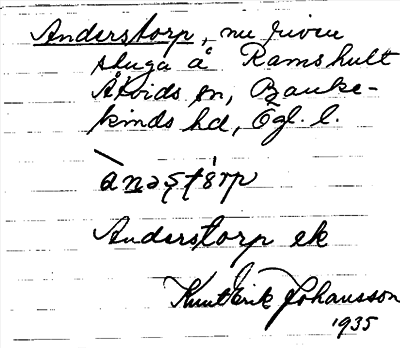 Anderstorp, nu riven
stuga å Ramshult
Åtvids sn, Banke-
kinds hd, Ögl. l.
Anderstorp ek
Knut Erik Johansson
1935